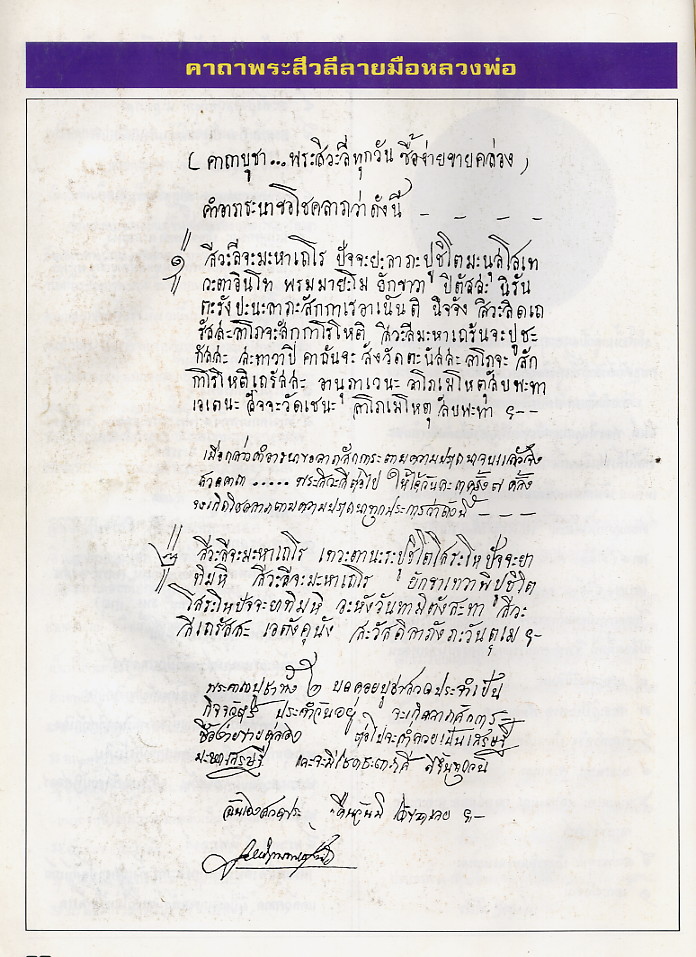 คาถาพระสีวลีลายมือหลวงพ่อ
(คาถาบูชา...พระสิวะลีทุกวัน ซื้อง่ายขายคล่อง)
คำอาราธนาขอโชคลาภว่าดังนี้ - - - -
๑ สีวะลีจะมะหาเถโร ปัจจะยะลาภะปูชิโตมะนุสโสเท
วะตาอินโท พรมมายะโม ยักขาวา ปิตัสสะ นิรัน
ตะรังปะนะลาภะสักกาเรอาเน็นติ นิจจัง สิวะลิดเถ
รัสสะลาโภจะสักกาโรโหติ สิวะลีมะหาเถรันจะปูชะ
กัสสะ สะทาวาปิ คาถันจะ สังวัดตะนัสสะ ลาโภจะ สัก
กาโรโหติเถรัสสะ อานุภาเวนะ ลาโภเมโหตุสับพะทา
เอเตนะ สัจจะวัดเชนะ ลาโภเมโหตุ สับพะทา ๚--
เมื่อกล่าวคำอาราธนาขอลาภสักการะตามความปรารถนาจบแล้วจึง
สวดคาถา ..... พระสิวะลีต่อไป ให้ได้วันละ ครั้ง ๗ ครั้ง
จะเกิดโชคลาภตามความปรารถนาทุกประการว่าดังนี้ - - -
๒ สีวะลีจะมะหาเถโร เทวะตานะระปูชิโตโสระโหปัจจะยา
ทิมหิ สีวะลีจะมะหาเถโร ยักขาเทวาพิปูชิโต
โสระโหปัจจะยาทิมหิ อะหังวันทามิตังสะทา สีวะ
ลีเถรัสสะ เอตังคุนัง สะวัสดิลาภังภะวันตุเม ๚-
พระคาถาบูชาทั้ง ๒ บท คอยบูชาสวดประจำเป็น
กิจจวัตร ประจำวันอยู่ จะเกิดลาภสักการะ
ซื้อง่ายขายคล่อง ต่อไปจะร่ำรวยเป็นเศรษฐี
มะหาเศรษฐี และจะมีโชค ทุกวัน